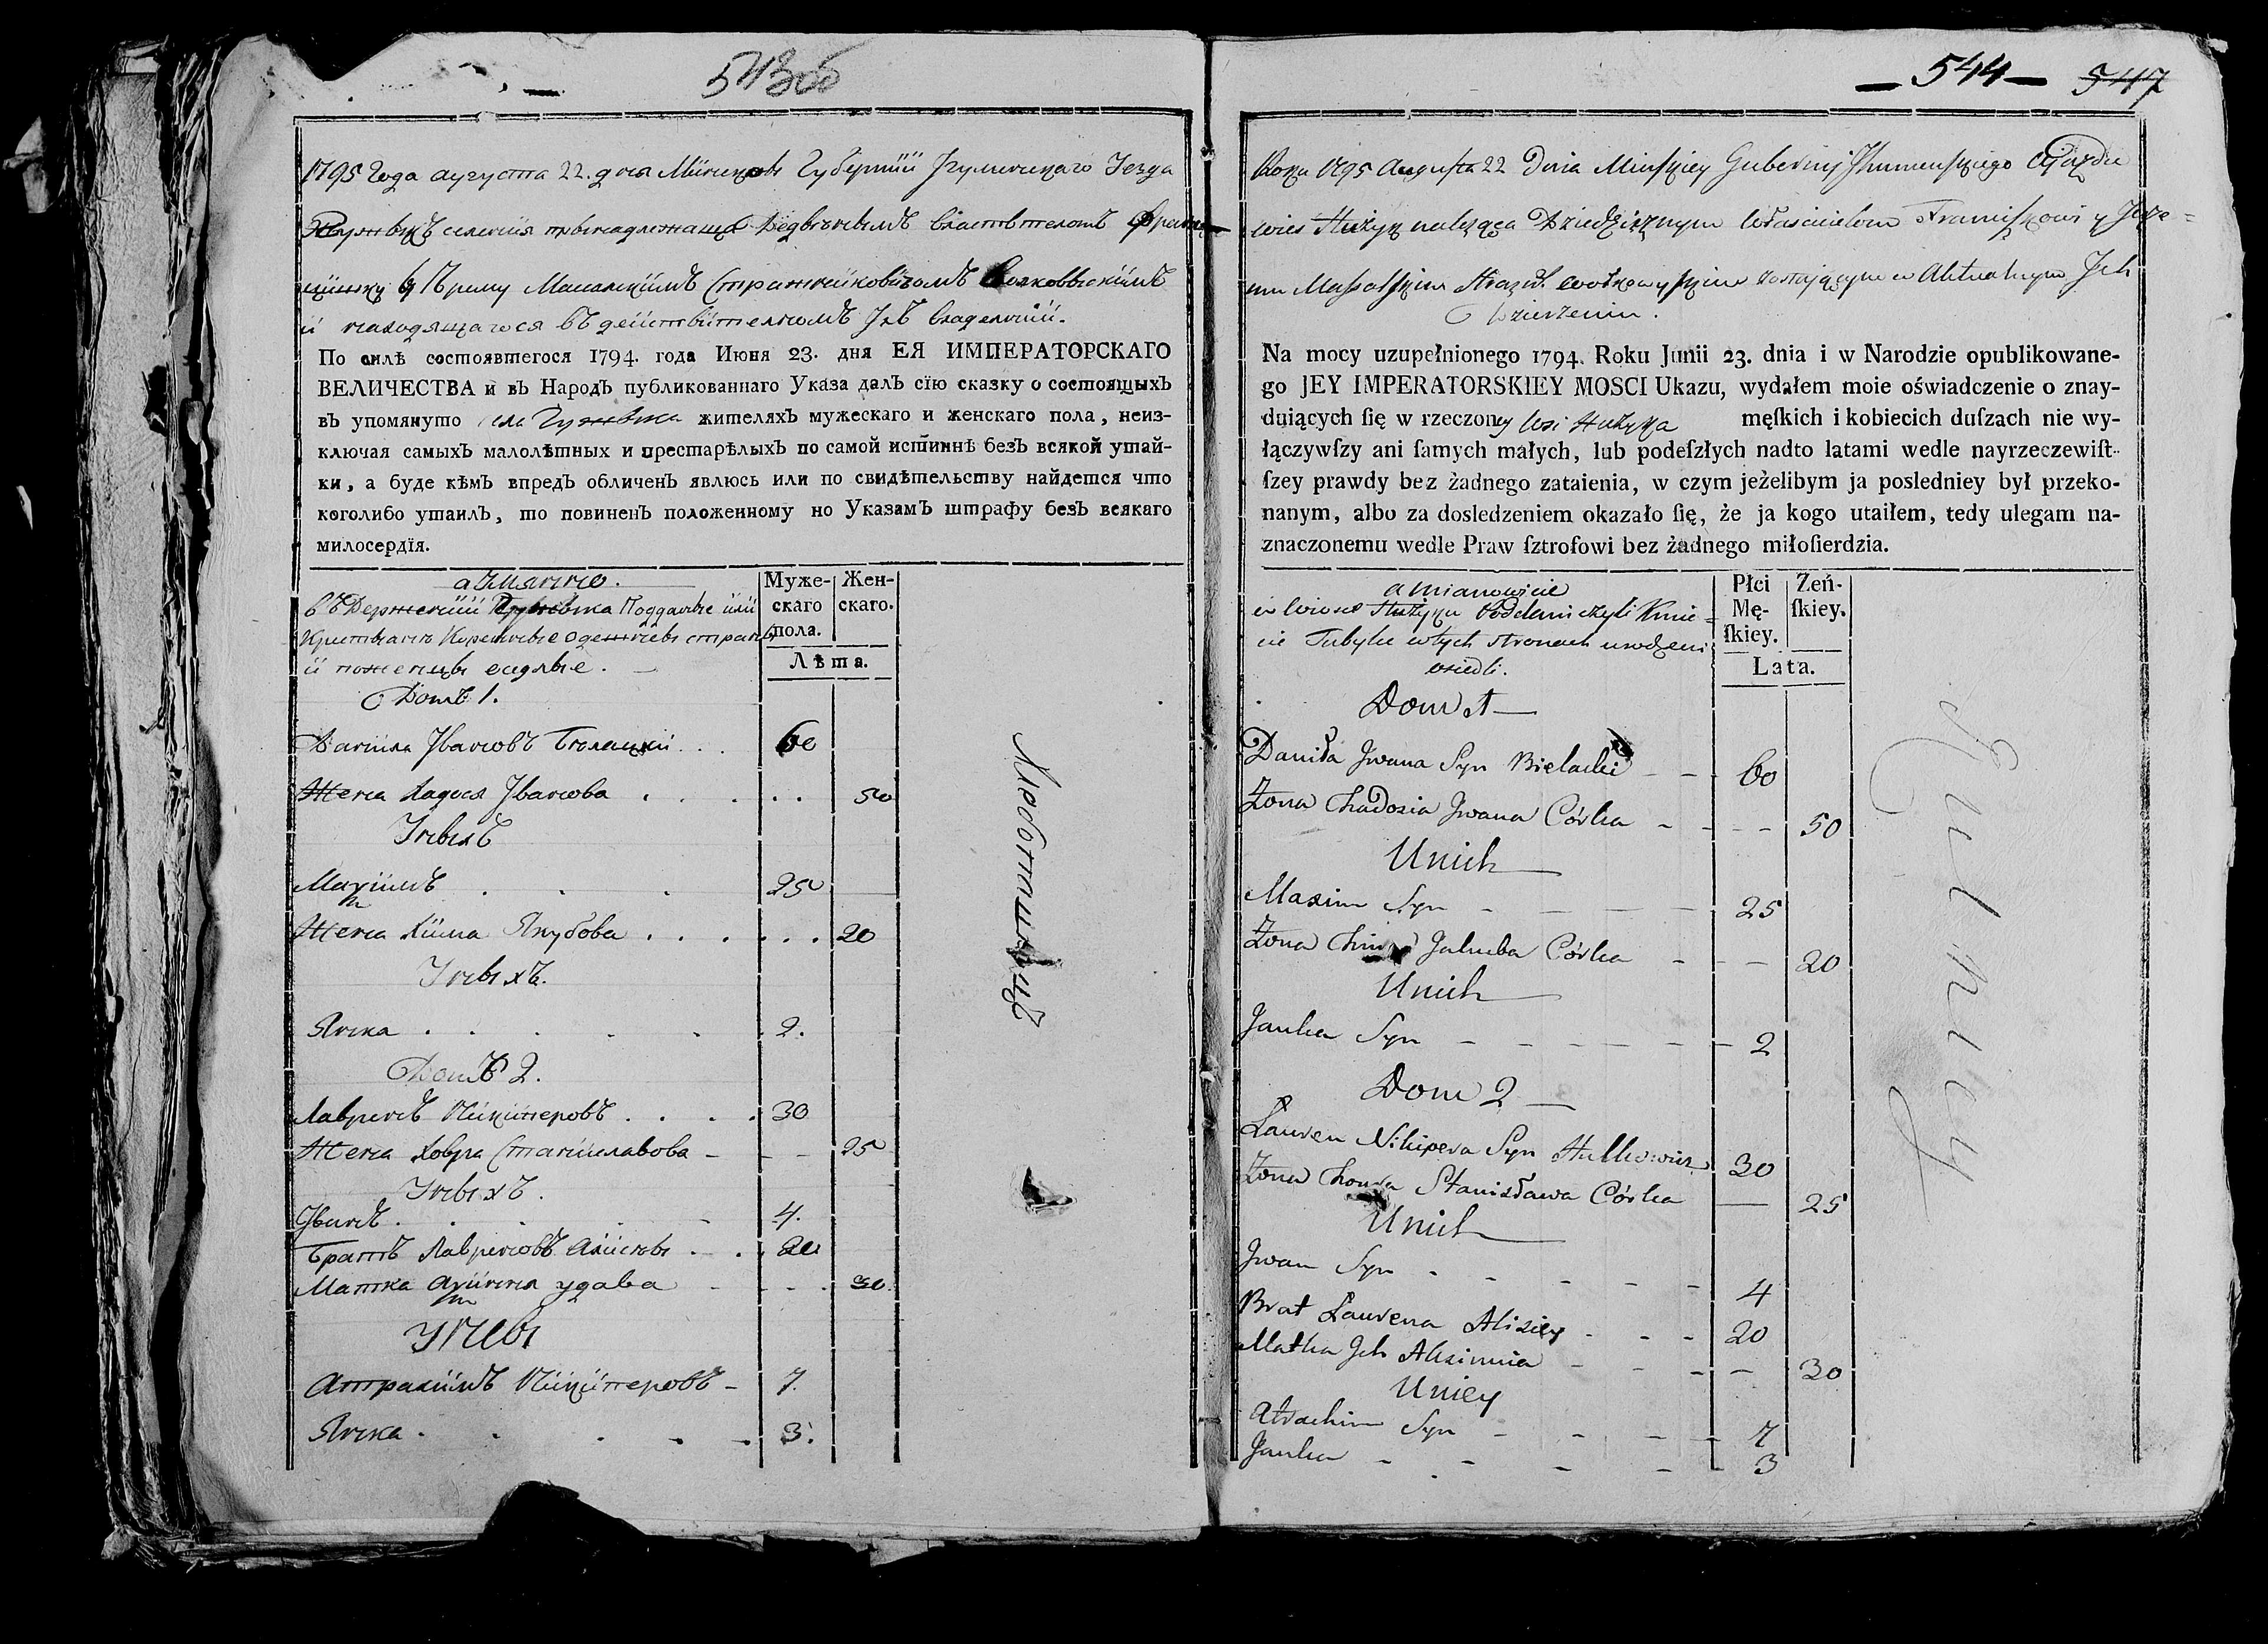 543об
1795 Года августа 22. дня Минской Губернии Игуменскаго Уезда
селения принадлежаща Владетелемъ Фран-
цишку Массальскимъ Стражниковичомъ Волковыскимъ
и находящагося въ действительномъ Ихъ владении.
По силѣ состоявшегося 1794. года Июня 23. дня ЕЯ ИМПЕРАТОРСКАГО
ВЕЛИЧЕСТВА и въ Народъ публикованнаго Указа далъ сїю сказку о состоящыхъ
въ упомянуто жителяхъ мужескаго и женскаго пола, неиз-
ключая самыхъ малолѣтных и престарѣлыхъ по самой истиннѣ безъ всякой утай-
ки, а буде кѣмъ впредъ обличенъ явлюсь или по свидѣтельству найдется что
коголибо утаилъ, то повиненъ положенному по Указамъ штрафу безъ всякаго
милосердїя.
аимянно.
Муже-скаго пола.
Жен-скаго.
Лѣта.
въ Подданые или
и поженцы оседлые.
Домъ 1.
Данила Ивановъ Белацкий 60
Жена Хадося Иванова 50
Унихъ
Махимъ 25
Жена Хима Якубова 20
Унихъ.
Янка 2.
Домъ 2.
Лавренъ Никиперовъ 30
Жена Ховра Станиславова 25
Унихъ.
Иванъ 4.
Братъ Лавреновъ Алисей 20
Матка Аксиння удава 30
Уней
Атрахимъ Никиперовъ 7.
Янка 3.
— 544 — 547
Roku 1795 Augusta 22 Dnia Minskiey Gubernij Ihumenskiego Ujazdu
wies Hużyn należąca Dziedzicznym Włascicielom Franciszkowi y Jeze=
mu Massalskim Strażd. wołkowyskim zostającym w Aktualnym Jch
Dzierżeniu.
Na mocy uzupełnionego 1794. Roku Junii 23. dnia i w Narodzie opublikowane-
go JEY IMPERATORSKIEY MOSCI Ukazu, wydałem moie oświadczenie o znay-
duiących ſię w rzeczoney wsi męſkich i kobiecich duſzach nie wy-
łączywſzy ani ſamych małych, lub podeſzłych nadto latami wedle nayrzeczewiſt-
ſzey prawdy bez żadnego zataienia, w czym jeżelibym ja posledniey był przeko-
nanym, albo za dosledzeniem okazało ſię, że ja kogo utaiłem, tedy ulegam na-
znaczonemu wedle Praw ſztrofowi bez żadnego miłoſierdzia.
a mianowicie
Płci Mę-ſkiey.
Zeń-ſkiey.
Lata.
w Wiosce Poddani czyli Kmie=
cie Tubylce w tych stronach urodzeni
osiedli.
Dom 1
Daniła Jwana Syn Bielacki 60
Żona Chadosia Jwana Córka 50
Unich
Maxim Syn 25
Żona Chima Jakuba Córka 20
Unich
Janka Syn 2
Dom 2
Lauren Nikipera Syn 30
Żona Chowra Stanisława Córka 25
Unich
Jwan Syn 4
Brat Laurena Alisiey 20
Matka Jch Aksinnia 30
Uniey
Atrachim Syn 7
Janka 3